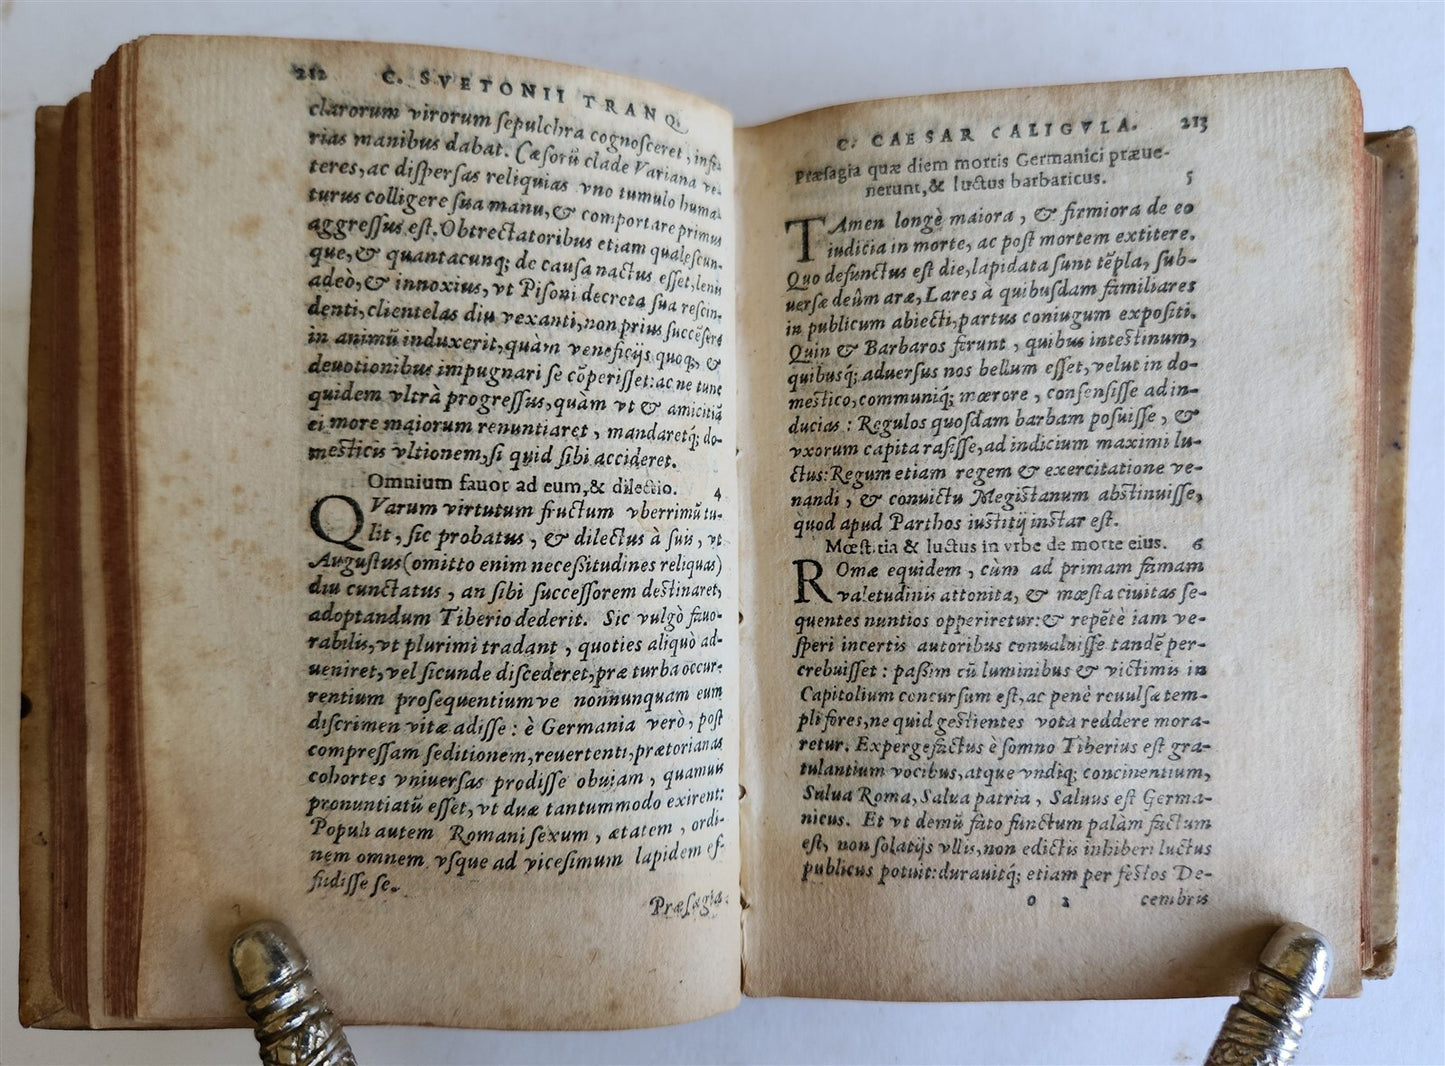 212 C. SVETONII TRANQ.
clarorum virorum ſepulchra cognoſceret, infe-
rias manibus dabat. Cæſorũ clade Variana ve-
teres, ac diſperſas reliquias vno tumulo huma-
turus colligere ſua manu, & comportare primus
aggreſſus eſt. Obtrectatoribus etiam qualeſcun-
que, & quantacunq; de cauſa nactus eſſet, lenis
adeò, & innoxius, vt Piſoni decreta ſua reſcin-
denti, clientelas diu vexanti, non prius ſuccẽſere
in animũ induxerit, quàm veneficijs quoq; &
deuotionibus impugnari ſe cõperiſſet: ac ne tunc
quidem vltrà progreſſus, quàm vt & amicitiã
ei more maiorum renuntiaret, mandaretq́; do-
meſticis vltionem, ſi quid ſibi accideret.
Omnium fauor ad eum, & dilectio. 4
QVarum virtutum fructum vberrimũ tu-
lit, ſic probatus, & dilectus à ſuis, vt
Auguſtus (omitto enim neceſſitudines reliquas)
diu cunctatus, an ſibi ſucceſſorem deſtinaret,
adoptandum Tiberio dederit. Sic vulgò fauo-
rabilis, vt plurimi tradant, quoties aliquò ad-
ueniret, vel ſicunde diſcederet, præ turba occur-
rentium proſequentiumve nonnunquam eum
diſcrimen vitæ adiſſe: è Germania verò, poſt
compreſſam ſeditionem, reuertenti, prætorianas
cohortes vniuerſas prodiſſe obuiam, quamuis
pronuntiatũ eſſet, vt duæ tantummodo exirent:
Populi autem Romani ſexum, ætatem, ordi-
nem omnem vſque ad viceſimum lapidem ef-
fudiſſe ſe.
Præſagia
C. CAESAR CALIGVLA. 213
Præſagia quæ diem mortis Germanici præue-
nerunt, & luctus barbaricus. 5
TAmen longè maiora, & firmiora de eo
iudicia in morte, ac poſt mortem extitere.
Quo defunctus eſt die, lapidata ſunt tẽpla, ſub-
uerſæ deûm aræ, Lares à quibuſdam familiares
in publicum abiecti, partus coniugum expoſiti.
Quin & Barbaros ferunt, quibus inteſtinum,
quibusq́; aduerſus nos bellum eſſet, velut in do-
meſtico, communiq́; mœrore, conſenſiſſe ad in-
ducias: Regulos quoſdam barbam poſuiſſe, &
vxorum capita raſiſſe, ad indicium maximi lu-
ctus: Regum etiam regem & exercitatione ve-
nandi, & conuictu Megiſtanum abſtinuiſſe,
quod apud Parthos iuſtitij inſtar eſt.
Mœſtitia & luctus in vrbe de morte eius. 6
ROmæ equidem, cùm ad primam famam
valetudinis attonita, & mœſta ciuitas ſe-
quentes nuntios opperiretur: & repẽtè iam ve-
ſperi incertis autoribus conualuiſſe tandẽ per-
crebuiſſet: paſſim cũ luminibus & victimis in
Capitolium concurſum eſt, ac penè reuulſæ tem-
pli fores, ne quid geſtientes vota reddere mora-
retur. Expergefactus è ſomno Tiberius eſt gra-
tulantium vocibus, atque vndiq; concinentium,
Salua Roma, Salua patria, Saluus eſt Germa-
nicus. Et vt demũ fato functum palàm factum
eſt, non ſolatijs vllis, non edictis inhiberi luctus
publicus potuit: durauitq́; etiam per feſtos De-
o 2 cembris